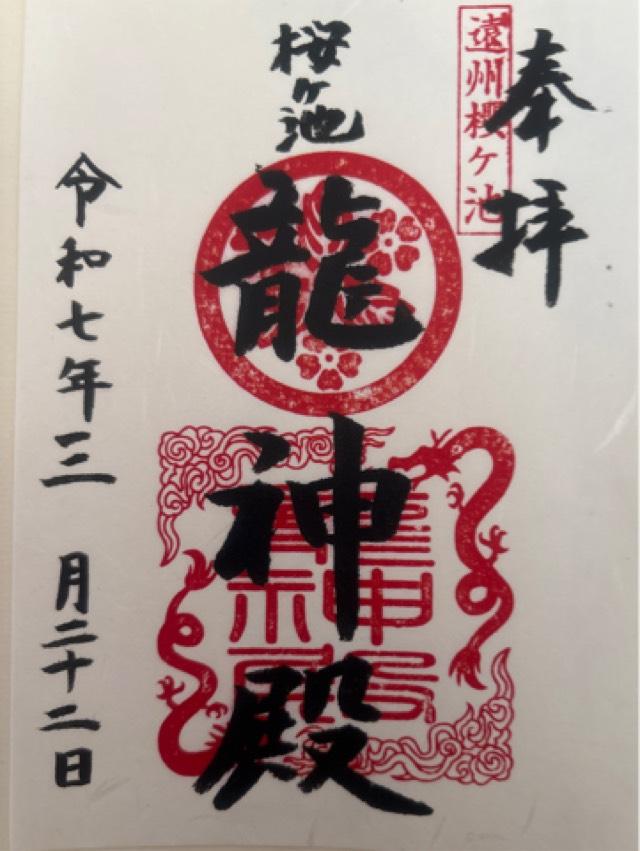 奉拝
遠州櫻ケ池
桜ヶ池
龍神殿
令和七年三月二十二日